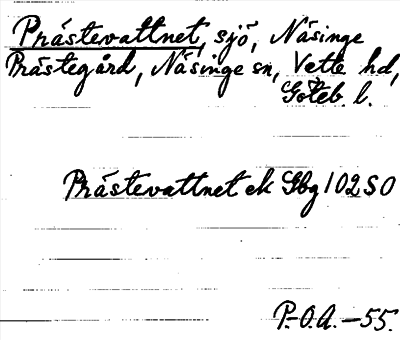 Prästevattnet, sjö, Näsinge
Prästegård, Näsinge sn, Vette hd,
Göteb. l.
Prästevattnet ek Gbg 102 SO
P.-O.A. -55.